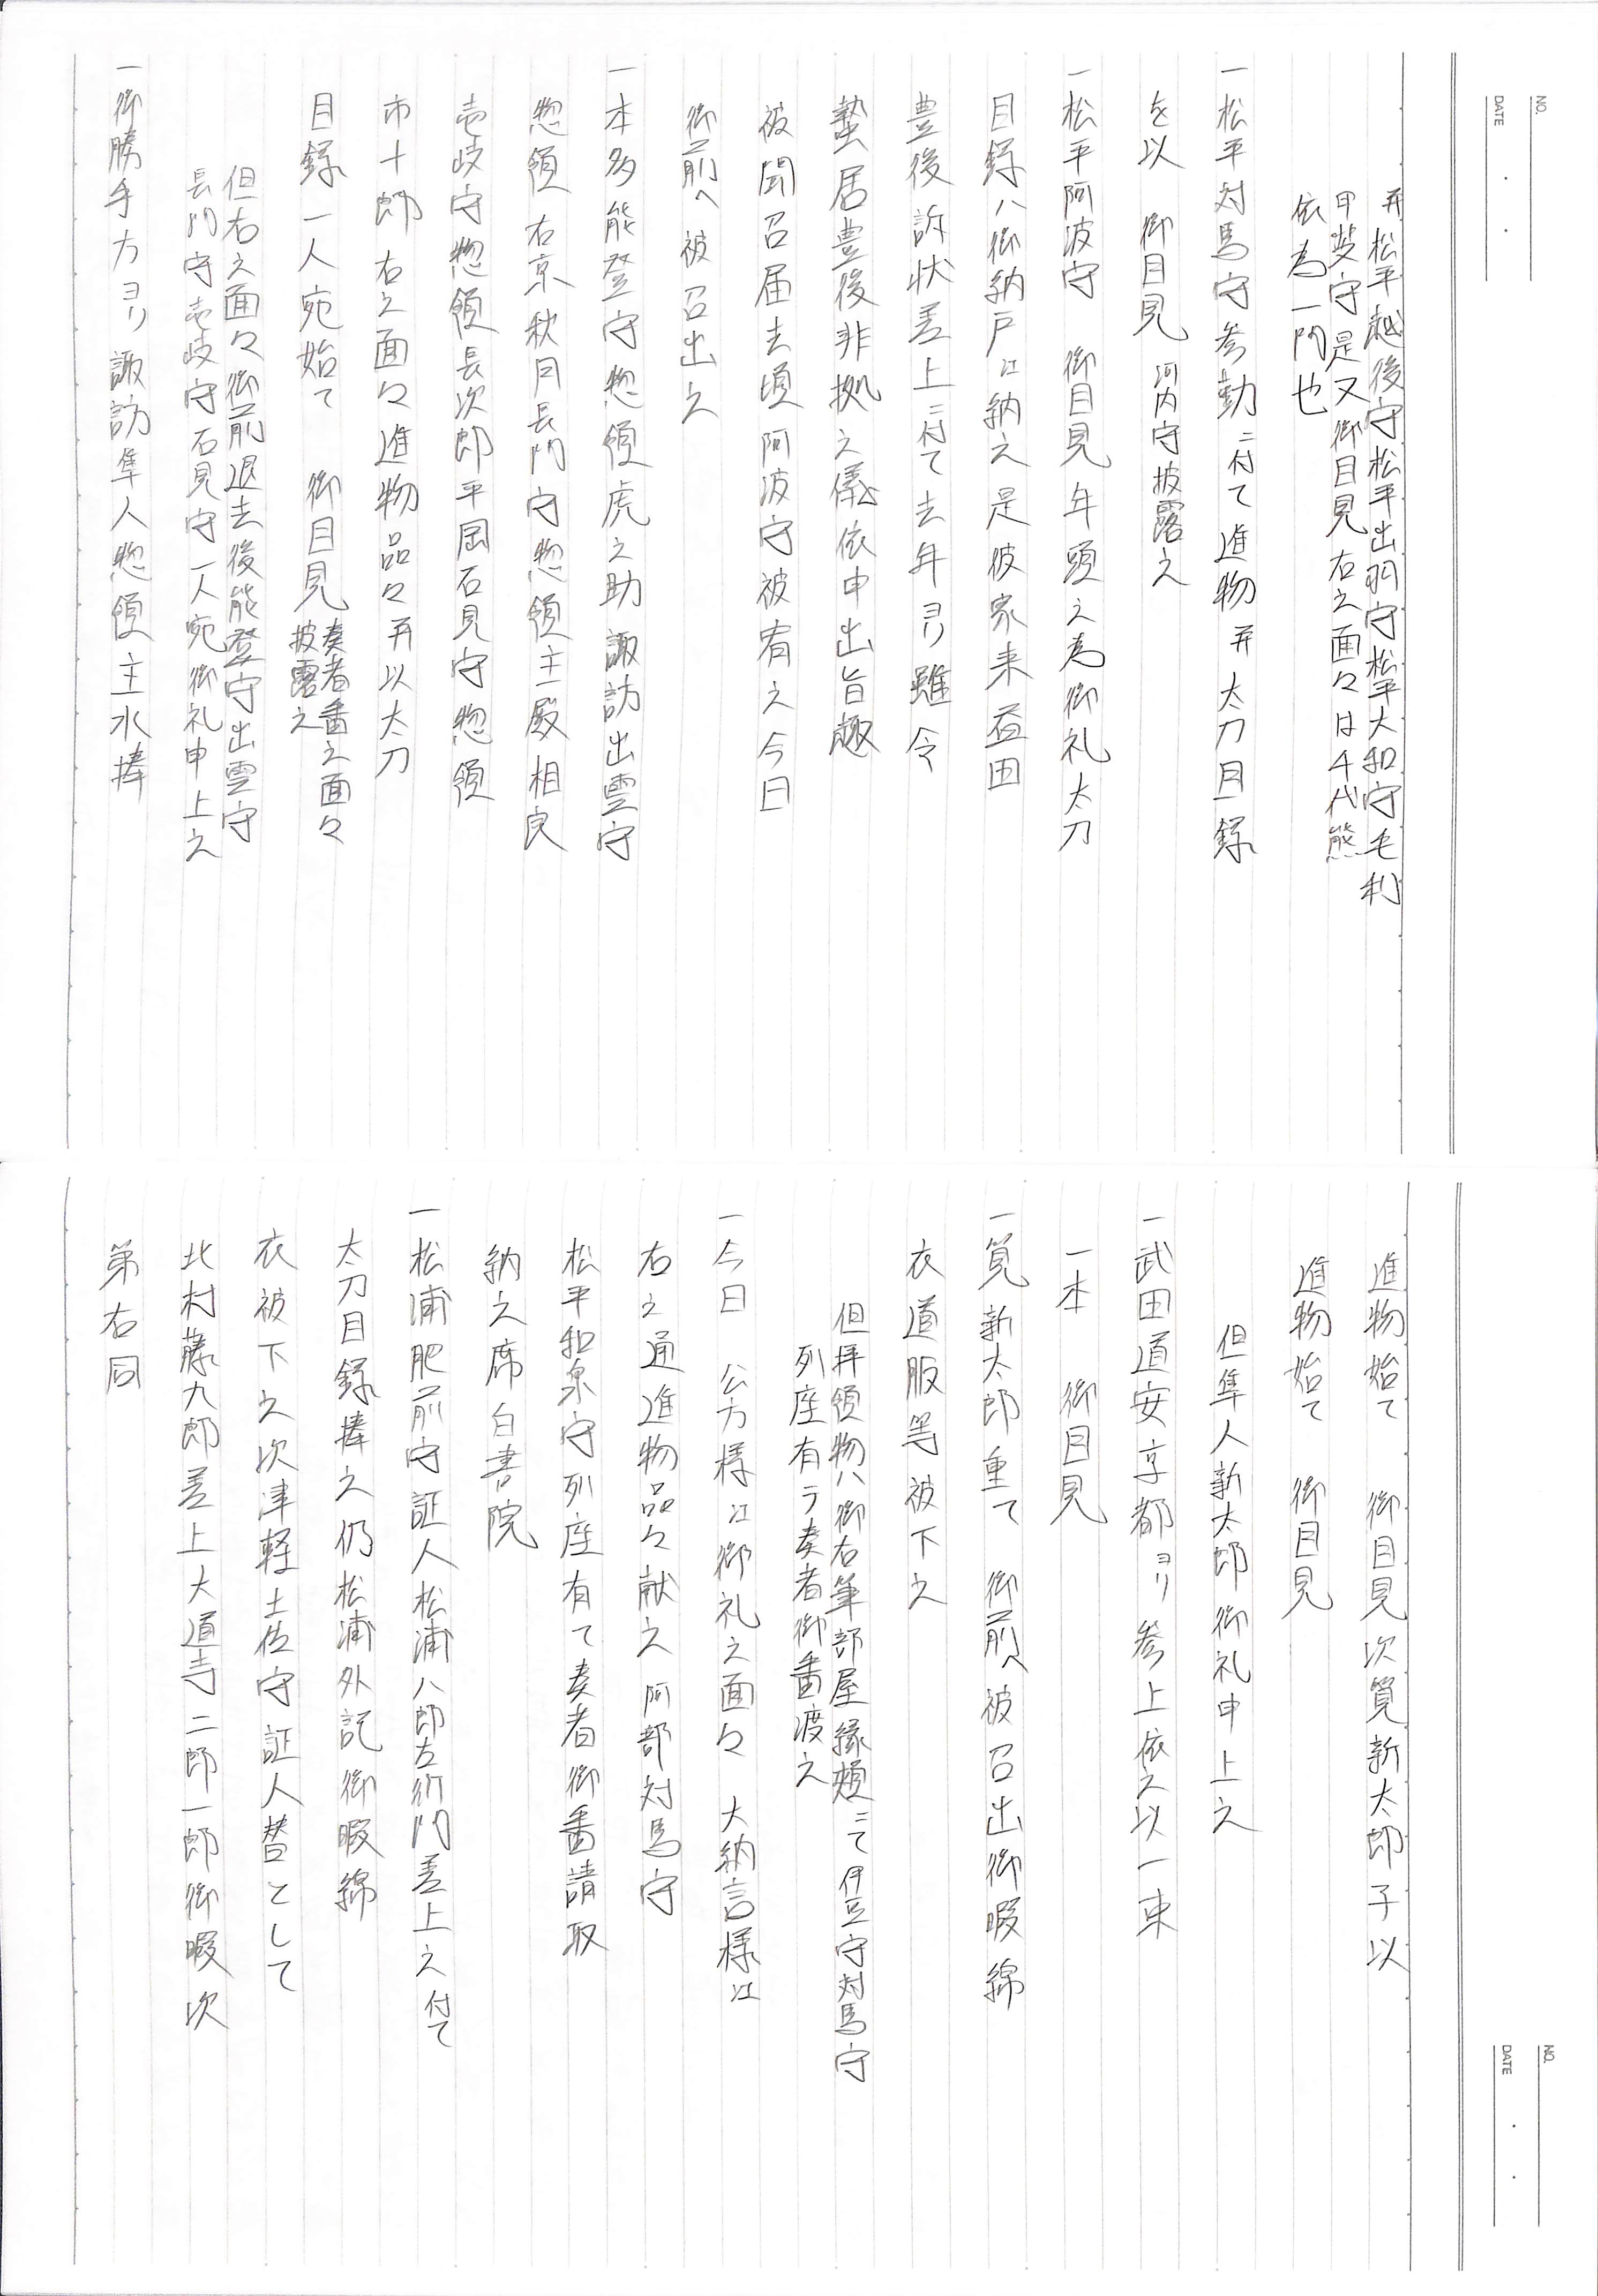 NO.
DATE
并松平越後守松平出羽守松平大和守毛利
甲斐守是又御目見右之面々は千代熊
依為一門也
一松平対馬守参勤ニ付て進物并太刀目録
を以 御目見 河内守披露之
一松平阿波守 御目見年頭之為御礼太刀
目録ハ御納戸江納之是彼家来益田
豊後訴状差上ニ付て去年ヨリ雖令
蟄居豊後非拠之儀依申出旨趣
被聞召届去頃阿波守被宥之今日
御前へ被召出之
一本多能登守惣領虎之助諏訪出雲守
惣領右京秋月長門守惣領主殿相良
壱岐守惣領長次郎平岡石見守惣領
市十郎右之面々進物品々并以太刀
目録一人宛始て 御目見 奏者番之面々
披露之
但右之面々御前退去後能登守出雲守
長門守壱岐守石見守一人宛御礼申上之
一御勝手方ヨリ諏訪隼人惣領主水捧
NO.
DATE
進物始て 御目見次筧新太郎子以
進物始て 御目見
但隼人新太郎御礼申上之
一武田道安京都ヨリ参上依之以一束
一本 御目見
一筧新太郎重て 御前へ被召出御暇綿
衣道服等被下之
但拝領物ハ御右筆部屋縁頬ニて伊豆守対馬守
列座有テ奏者御番渡之
一今日 公方様江御礼之面々 大納言様江
右之通進物品々献之阿部対馬守
松平和泉守列座有て奏者御番請取
納之席白書院
一松浦肥前守証人松浦八郎左衛門差上之付て
太刀目録捧之仍松浦外記御暇綿
衣被下之次津軽土佐守証人替として
北村藤九郎差上大道寺二郎一郎御暇次
第右同